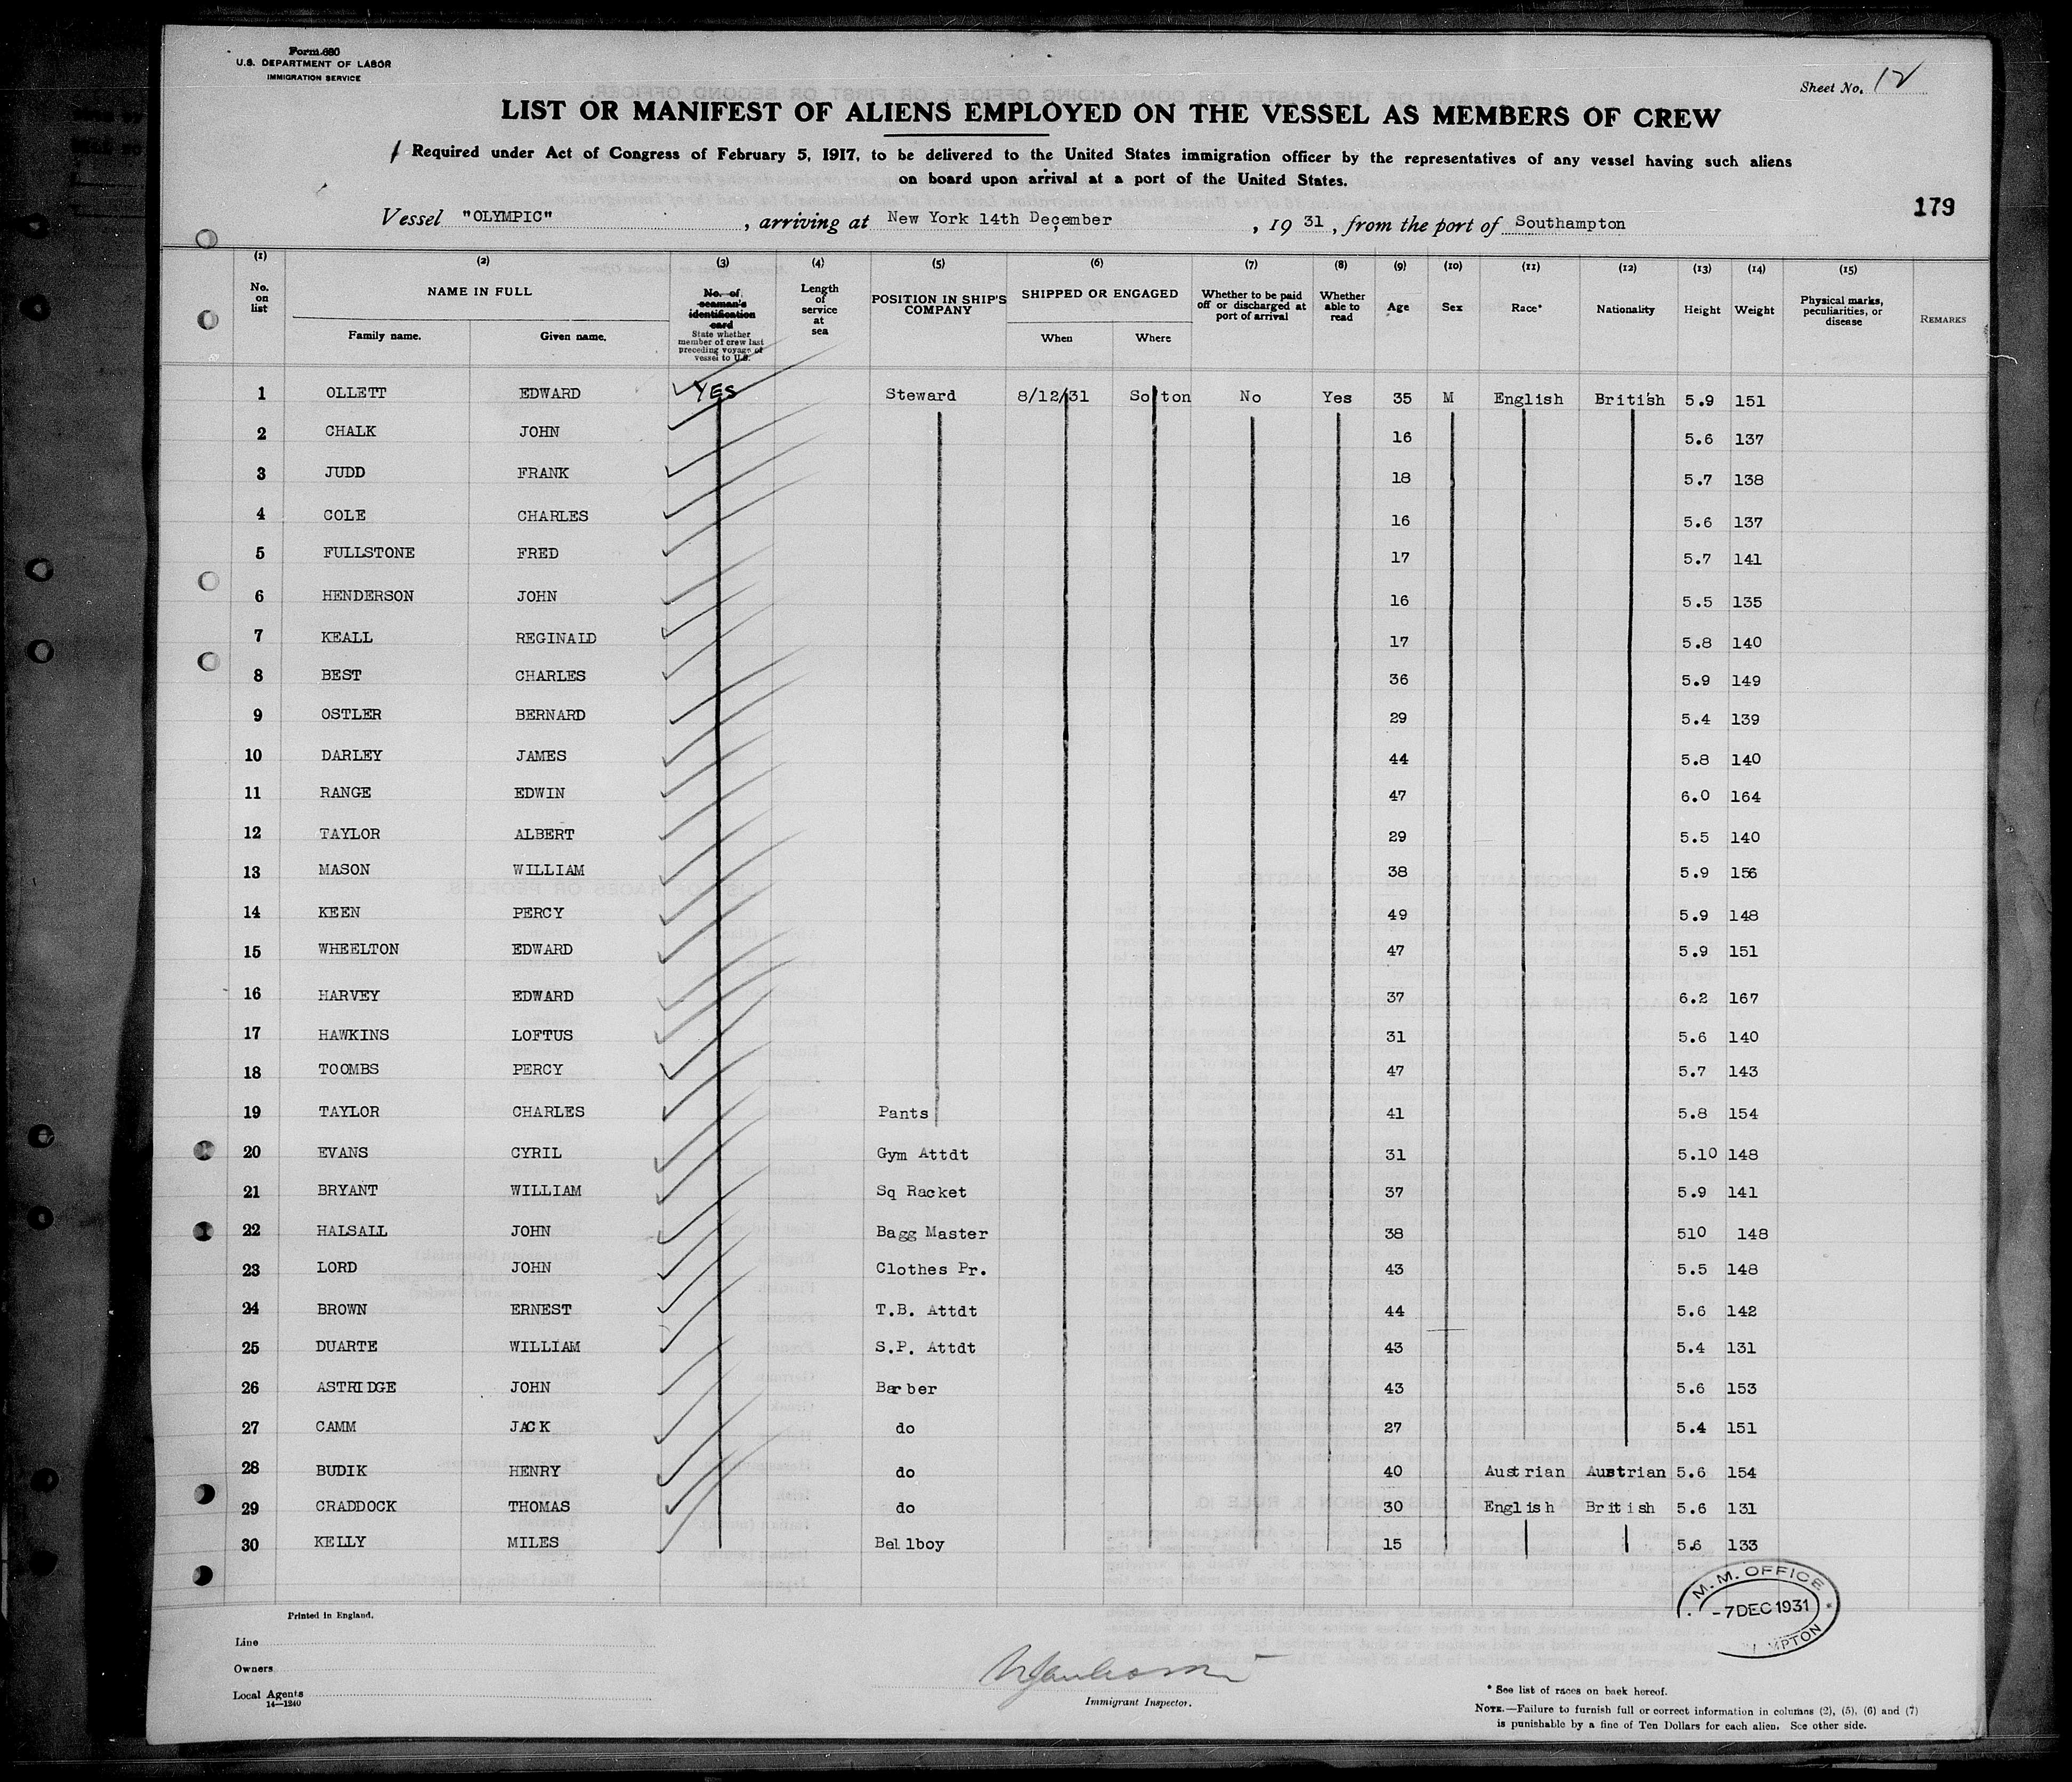 Form 680
U.S. DEPARTMENT OF LABOR
IMMIGRATION SERVICE
Sheet No. 12
LIST OR MANIFEST OF ALIENS EMPLOYED ON THE VESSEL AS MEMBERS OF CREW
Required under Act of Congress of February 5, 1917, to be delivered to the United States immigration officer by the representatives of any vessel having such aliens
on board upon arrival at a port of the United States.
179
Vessel "OLYMPIC", arriving at New York 14th December, 19 31, from the port of Southampton
(1) (2) (3) (4) (5) (6) (7) (8) (9) (10) (11) (12) (13) (14) (15)
No. on list NAME IN FULL Family name. Given name. No. of seaman's identification card State whether member of crew last preceding voyage of vessel to U.S. Length of service at sea POSITION IN SHIP'S COMPANY SHIPPED OR ENGAGED When Where Whether to be paid off or discharged at port of arrival Whether able to read Age Sex Race* Nationality Height Weight Physical marks, peculiarities, or disease REMARKS
1 OLLETT EDWARD YES Steward 8/12/31 So/ton No Yes 35 M English British 5.9 151
2 CHALK JOHN 16 5.6 137
3 JUDD FRANK 18 5.7 138
4 COLE CHARLES 16 5.6 137
5 FULLSTONE FRED 17 5.7 141
6 HENDERSON JOHN 16 5.5 135
7 KEALL REGINALD 17 5.8 140
8 BEST CHARLES 36 5.9 149
9 OSTLER BERNARD 29 5.4 139
10 DARLEY JAMES 44 5.8 140
11 RANGE EDWIN 47 6.0 164
12 TAYLOR ALBERT 29 5.5 140
13 MASON WILLIAM 38 5.9 156
14 KEEN PERCY 49 5.9 148
15 WHEELTON EDWARD 47 5.9 151
16 HARVEY EDWARD 37 6.2 167
17 HAWKINS LOFTUS 31 5.6 140
18 TOOMBS PERCY 47 5.7 143
19 TAYLOR CHARLES Pants 41 5.8 154
20 EVANS CYRIL Gym Attdt 31 5.10 148
21 BRYANT WILLIAM Sq Racket 37 5.9 141
22 HALSALL JOHN Bagg Master 38 510 148
23 LORD JOHN Clothes Pr. 43 5.5 148
24 BROWN ERNEST T.B. Attdt 44 5.6 142
25 DUARTE WILLIAM S.P. Attdt 43 5.4 131
26 ASTRIDGE JOHN Barber 43 5.6 153
27 CAMM JACK do 27 5.4 151
28 BUDIK HENRY do 40 Austrian Austrian 5.6 154
29 CRADDOCK THOMAS do 30 English British 5.6 131
30 KELLY MILES Bellboy 15 5.6 133
M.M. OFFICE
-7 DEC 1931
Printed in England.
Line
Owners
Local Agents
14—1240
Immigrant Inspector.
* See list of races on back hereof.
NOTE.—Failure to furnish full or correct information in columns (2), (5), (6) and (7)
is punishable by a fine of Ten Dollars for each alien. See other side.